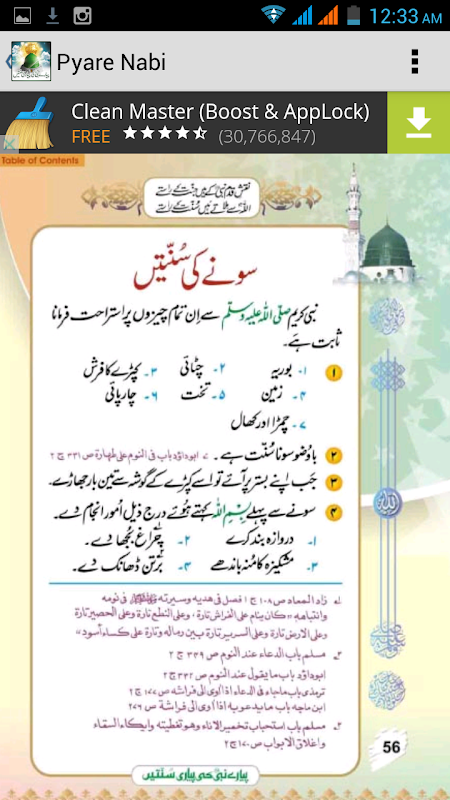 12:33 AM
Pyare Nabi
Clean Master (Boost & AppLock)
FREE (30,766,847)
Table of Contents
نقشِ قدم نبیؐ کے ہیں جنت کے راستے
اللہؐ سے ملاتے ہیں سُنّت کے راستے
سونے کی سُنّتیں
نبی کریم صلی اللہ علیہ وسلم سے اِن تمام چیزوں پر استراحت فرمانا
ثابت ہے۔
۱ ۱۔ بوریہ ۲۔ چٹائی ۳۔ کپڑے کا فرش
۴۔ زمین ۵۔ تخت ۶۔ چارپائی
۷۔ چمڑا اور کھال
۲ باوُضو سونا سُنّت ہے۔ ۷ ابوداؤد باب فی النوم علی طهارة ص ۳۳۱ ج ۲
۳ جب اپنے بستر پر آئے تو اسے کپڑے کے گوشہ سے تین بار جھاڑے۔
۴ سونے سے پہلے بِسْمِ اللہ کہتے ہُوئے درج ذیل اُمور انجام دے۔
۱۔ دروازہ بند کرے ۲۔ چراغ بُجھا دے۔
۳۔ مشکیزہ کا مُنہ باندھے ۴۔ برتن ڈھانک دے۔
زاد المعاد ص ۱۰۸ ج ۱ فصل فی هديه وسيرته ﷺ فی نومه
وانتباهه "كان ينام على الفراش تارة، وعلى النطع تارة وعلى الحصير تارة
وعلى الارض تارة وعلى السرير تارة بين رماله وتارة على كساء أسود"
۲۔ مسلم باب الدعاء عند النوم ص ۳۳۹ ج ۲
ابوداؤد باب ما يقول عند النوم ص ۳۳۲ ج ۲
ترمذی باب ماجاء فی الدعاء اذا اوى الى فراشه ص ۱۷۷ ج ۲
ابن ماجه باب ما يدعو به اذا اوى الى فراشه ص ۲۷۹
۳۔ مسلم باب استحباب تخمير الاناء وهو تغطيته وايكاء السقاء
واغلاق الابواب ص ۱۷۰ ج ۲
56
پیارے نبیؐ کی پیاری سنتیں